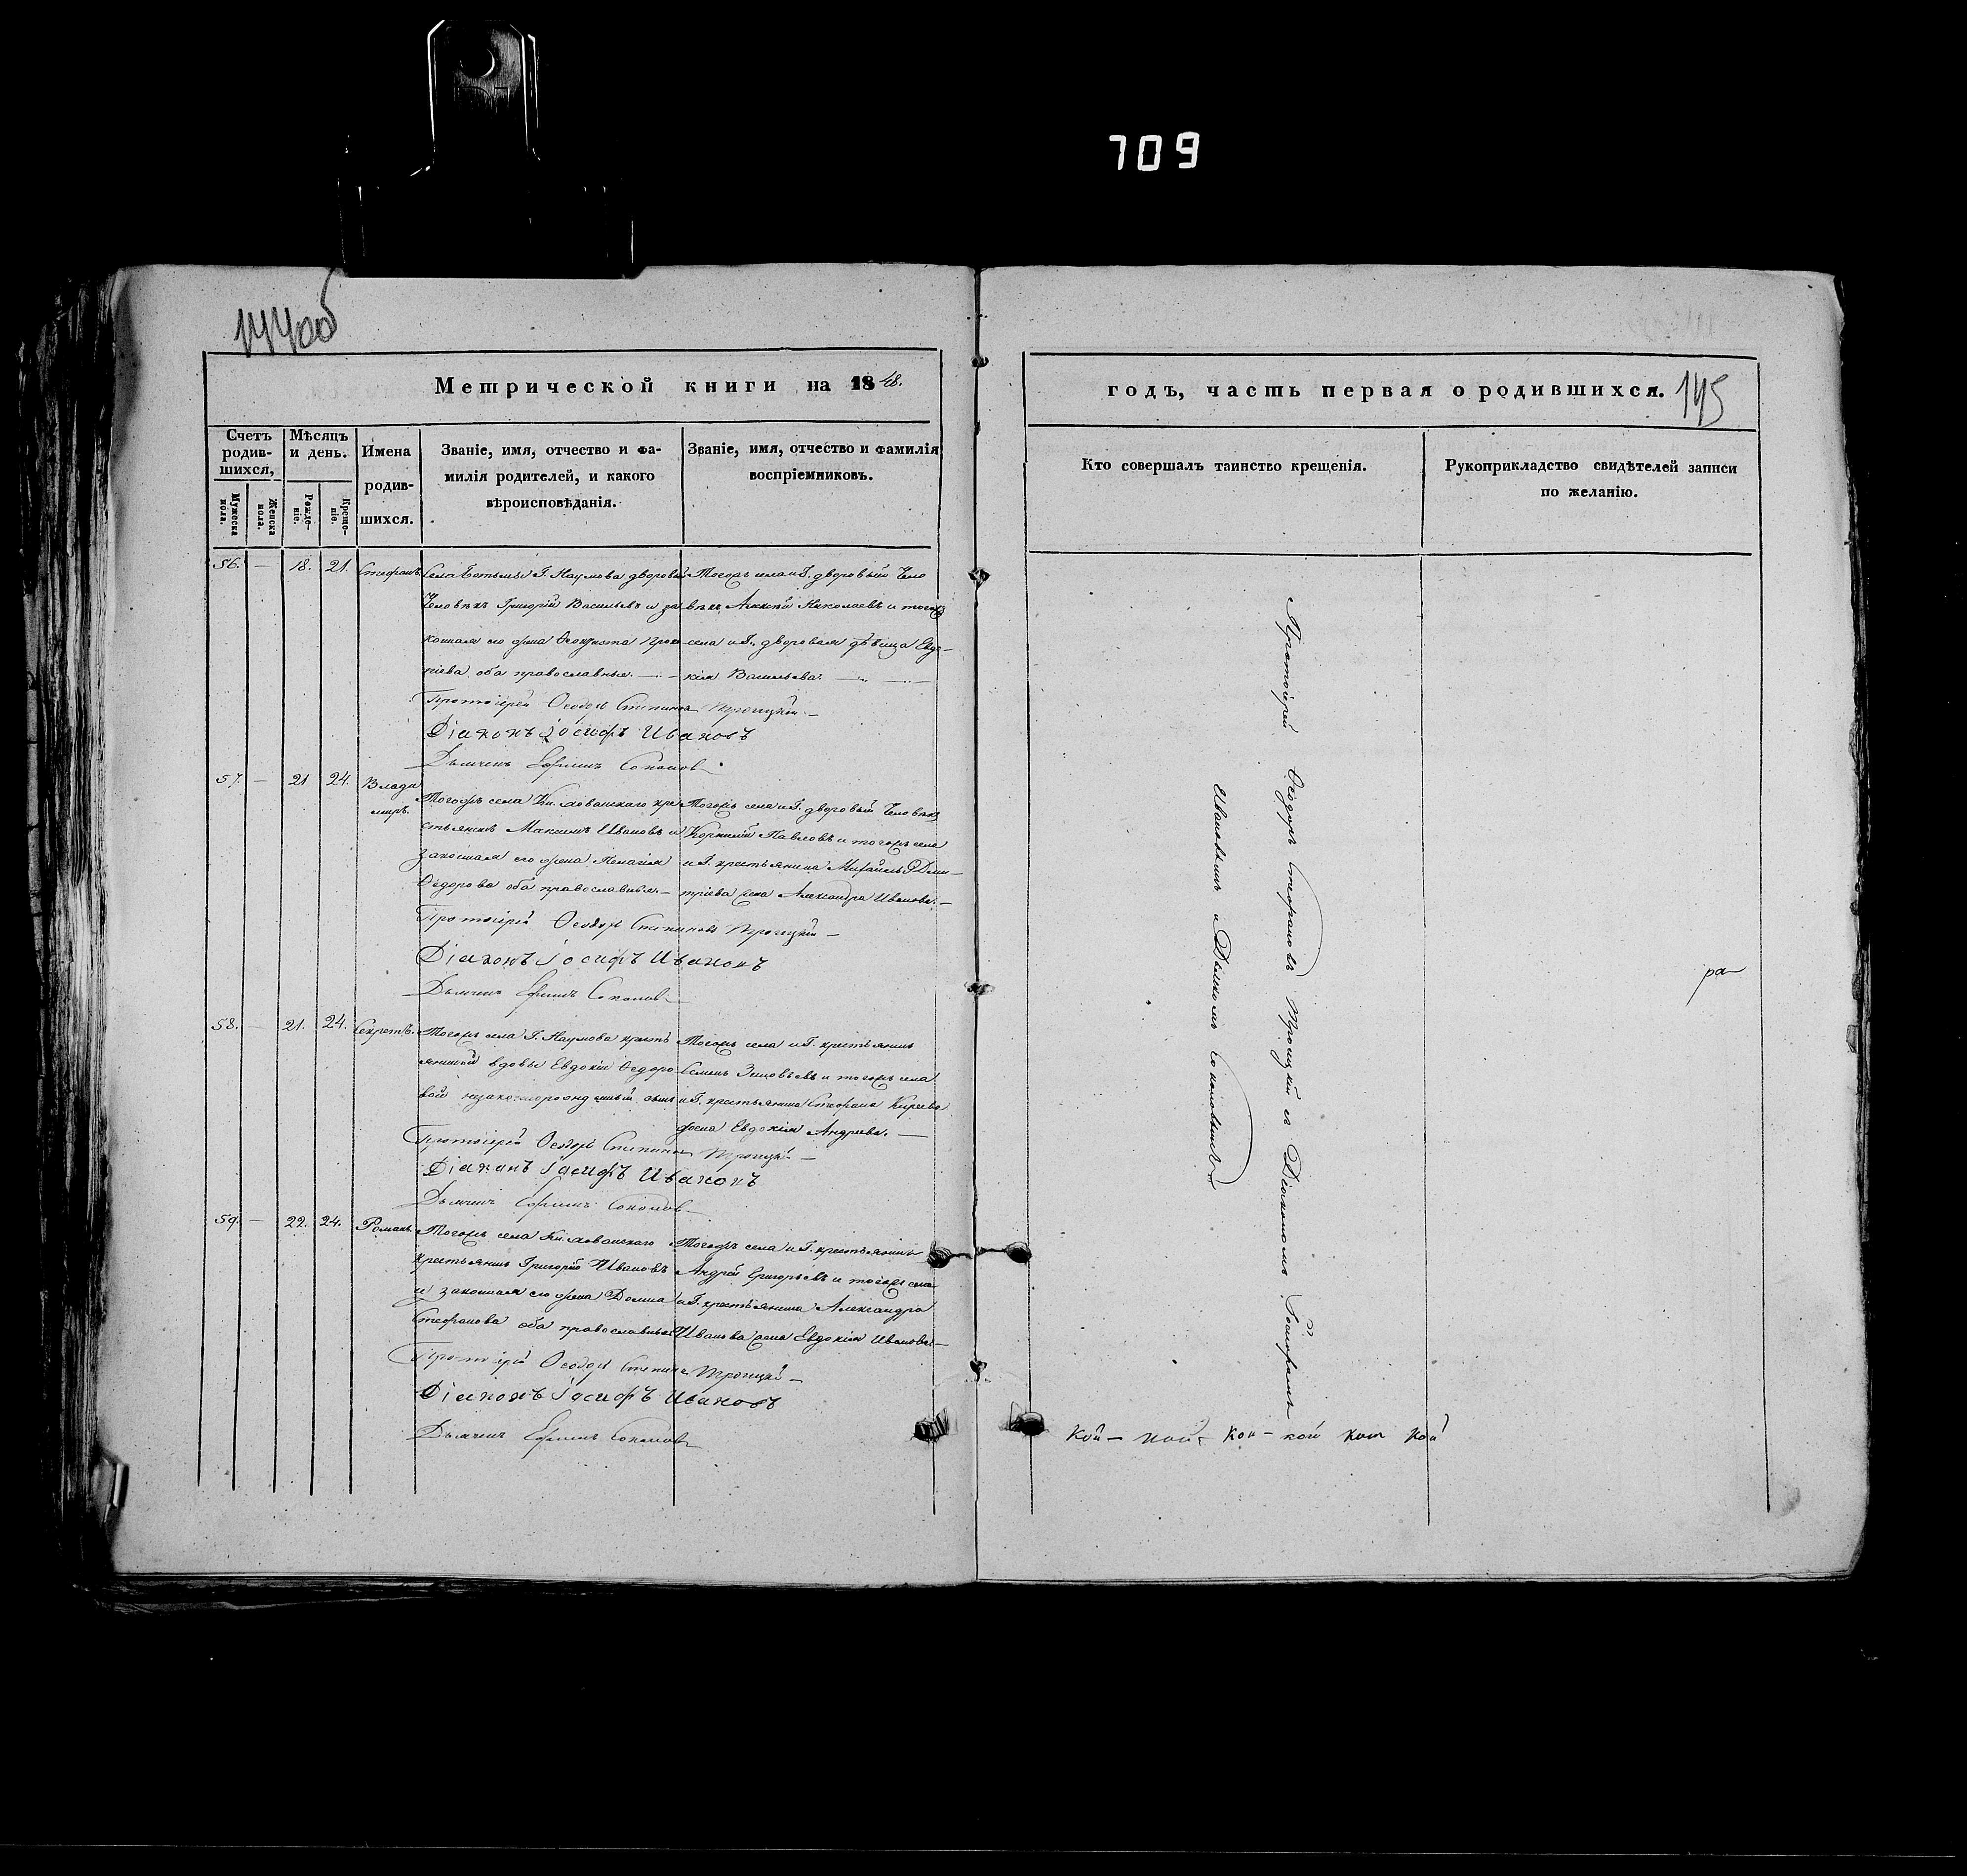 709
144об
Метрической книги на 1848.
Счетъ родив-шихся,
Мужеска пола.
Женска пола.
Мѣсяцъ и день.
Рожде-ніе.
Креще-ніе.
Имена
родив-
шихся.
Званіе, имя, отчество и фа-
милія родителей, и какого
вѣроисповѣданія.
Званіе, имя, отчество и фамилія
воспріемниковъ.
56. — 18. 21. Стефанъ
Села Г. Наумова дворовый
Человѣкъ Григорій Васильевъ и за
конная его жена Феоктиста Проко
піева оба православные. —
Тогожъ села и Г. дворовый Чело
вѣкъ Алексѣй Николаевъ и тогожъ
села и Г. дворовая дѣвица Евдо-
кія Васильева. —
Протоіерей Ѳеодоръ Степановъ Троицкій —
Діаконъ Іосифъ Ивановъ
Дьячекъ Ефимъ Соколовъ
57. — 21 24. Влади
миръ.
Тогожъ села Кн. Хованскаго кре
стьянинъ Максимъ Ивановъ и
законная его жена Пелагія
Ѳедорова оба православные. —
Тогожъ села и Г. дворовый Человѣкъ
Корнилій Павловъ и тогожъ села
и Г. крестьянина Михаила Дми-
тріева жена Александра Иванова. —
Протоіерей Ѳеодоръ Степановъ Троицкій —
Діаконъ Іосифъ Ивановъ
Дьячекъ Ефимъ Соколовъ
58. — 21. 24. Секретъ.
Тогожъ села Г. Наумова кресть
янской вдовы Евдокіи Ѳедоро
вой незаконнорожденный сынъ
Тогожъ села и Г. крестьянинъ
Семенъ Зиновьевъ и тогожъ села
и Г. крестьянина Стефана Киреева
жена Евдокія Андреева. —
Протоіерей Ѳеодоръ Степановъ Троицкій —
Діаконъ Іосифъ Ивановъ
Дьячекъ Ефимъ Соколовъ
59. — 22. 24. Романъ.
Тогожъ села Кн. Хованскаго
крестьянинъ Григорій Ивановъ
и законная его жена Домна
Стефанова оба православные
Тогожъ села и Г. крестьянинъ
Андрей Григорьевъ и тогожъ села
и Г. крестьянина Александра
Иванова жена Евдокія Иванова —
Протоіерей Ѳеодоръ Степановъ Троицкій —
Діаконъ Іосифъ Ивановъ
Дьячекъ Ефимъ Соколовъ
годъ, часть первая о родившихся.
145
Кто совершалъ таинство крещенія.
Рукоприкладство свидѣтелей записи
по желанію.
Протоіерей Ѳеодоръ Стефановъ Троицкій съ Діакономъ Іосифомъ
Ивановымъ и Дьячкомъ Соколовымъ
ра
кой — кой — кой — кой кой кой